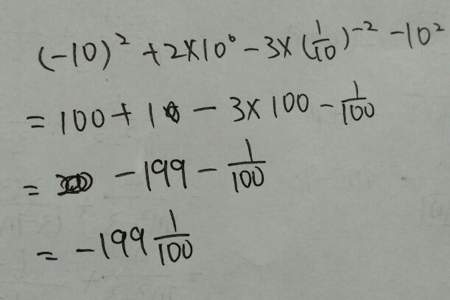 (-10)² + 2×10⁰ - 3×(1/10)⁻² - 10²
= 100 + 1 - 3×100 - 1/100
= -199 - 1/100
= -199 1/100